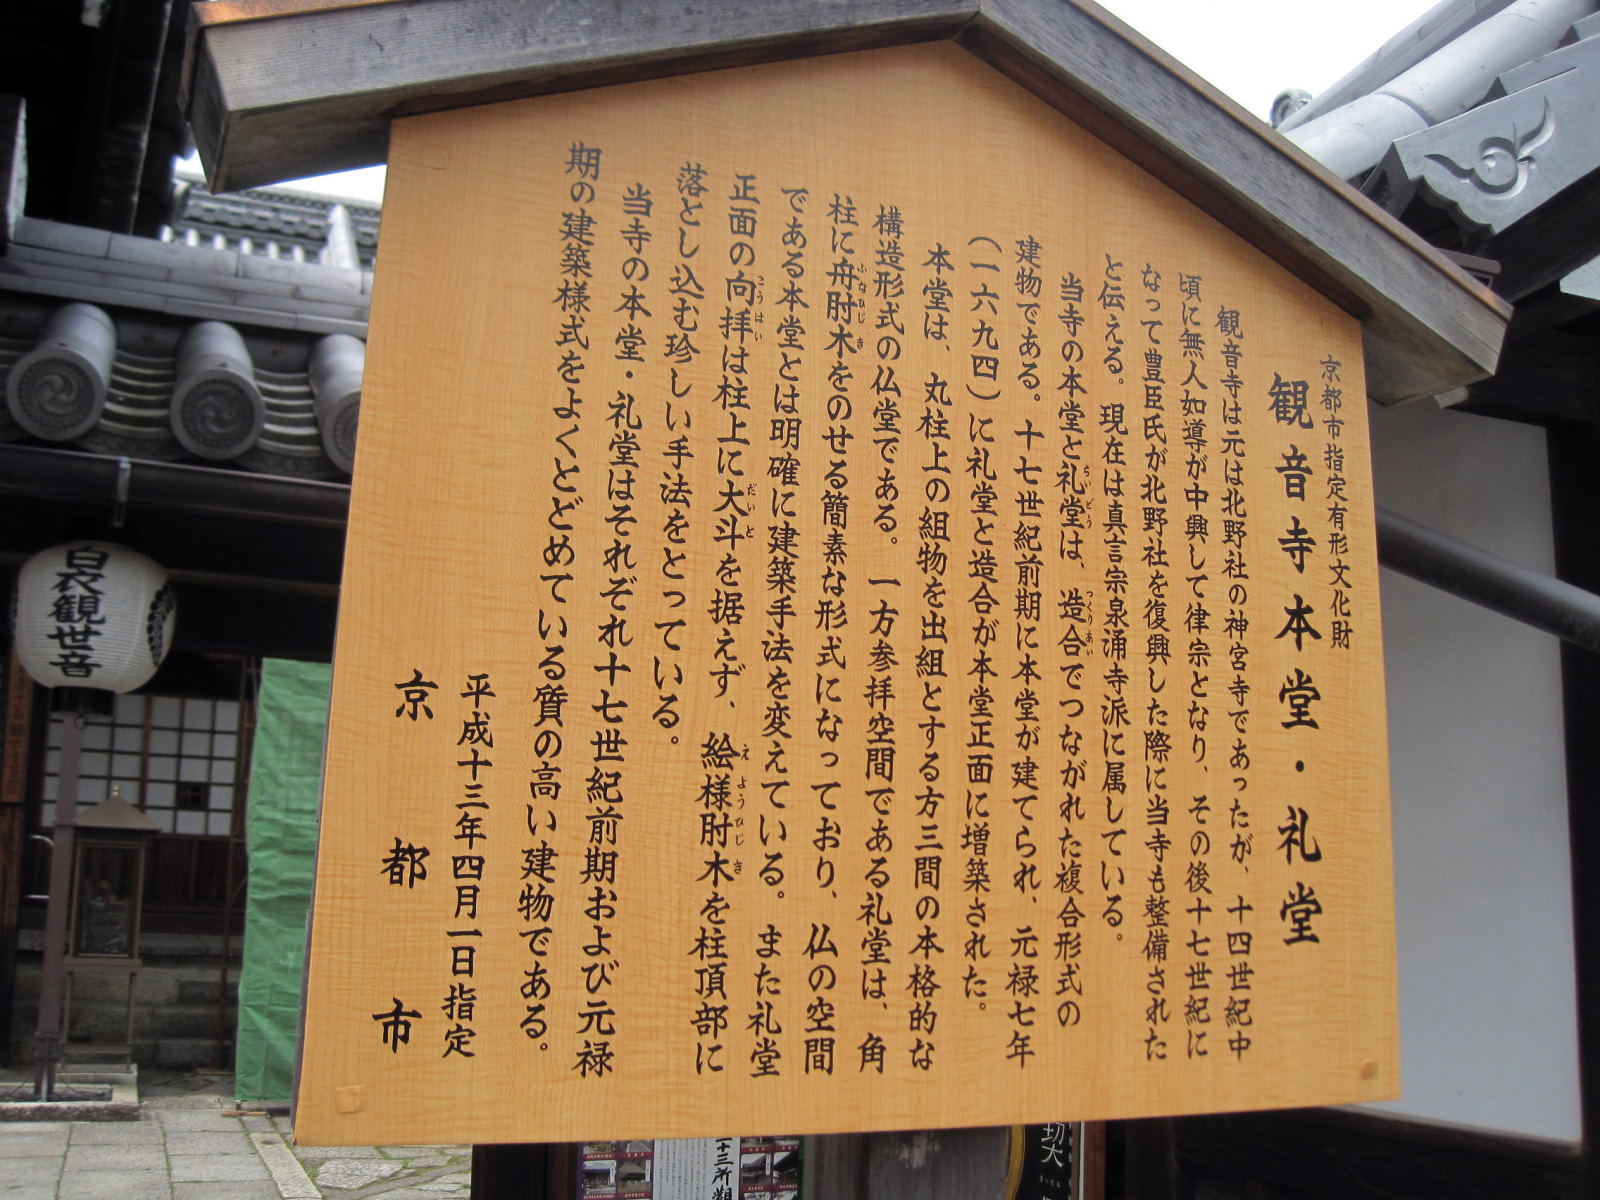 京都市指定有形文化財
観音寺本堂・礼堂
観音寺は元は北野社の神宮寺であったが、十四世紀中
頃に無人如導が中興して律宗となり、その後十七世紀に
なって豊臣氏が北野社を復興した際に当寺も整備された
と伝える。現在は真言宗泉涌寺派に属している。
当寺の本堂と礼堂は、造合でつながれた複合形式の
らいどう
つくりあい
建物である。十七世紀前期に本堂が建てられ、元禄七年
（一六九四）に礼堂と造合が本堂正面に増築された。
本堂は、丸柱上の組物を出組とする方三間の本格的な
構造形式の仏堂である。一方参拝空間である礼堂は、角
柱に舟肘木をのせる簡素な形式になっており、仏の空間
ふなひじき
である本堂とは明確に建築手法を変えている。また礼堂
正面の向拝は柱上に大斗を据えず、絵様肘木を柱頂部に
こうはい
だいと
えようひじき
落とし込む珍しい手法をとっている。
当寺の本堂・礼堂はそれぞれ十七世紀前期および元禄
期の建築様式をよくとどめている質の高い建物である。
平成十三年四月一日指定
京都市
白衣観世音